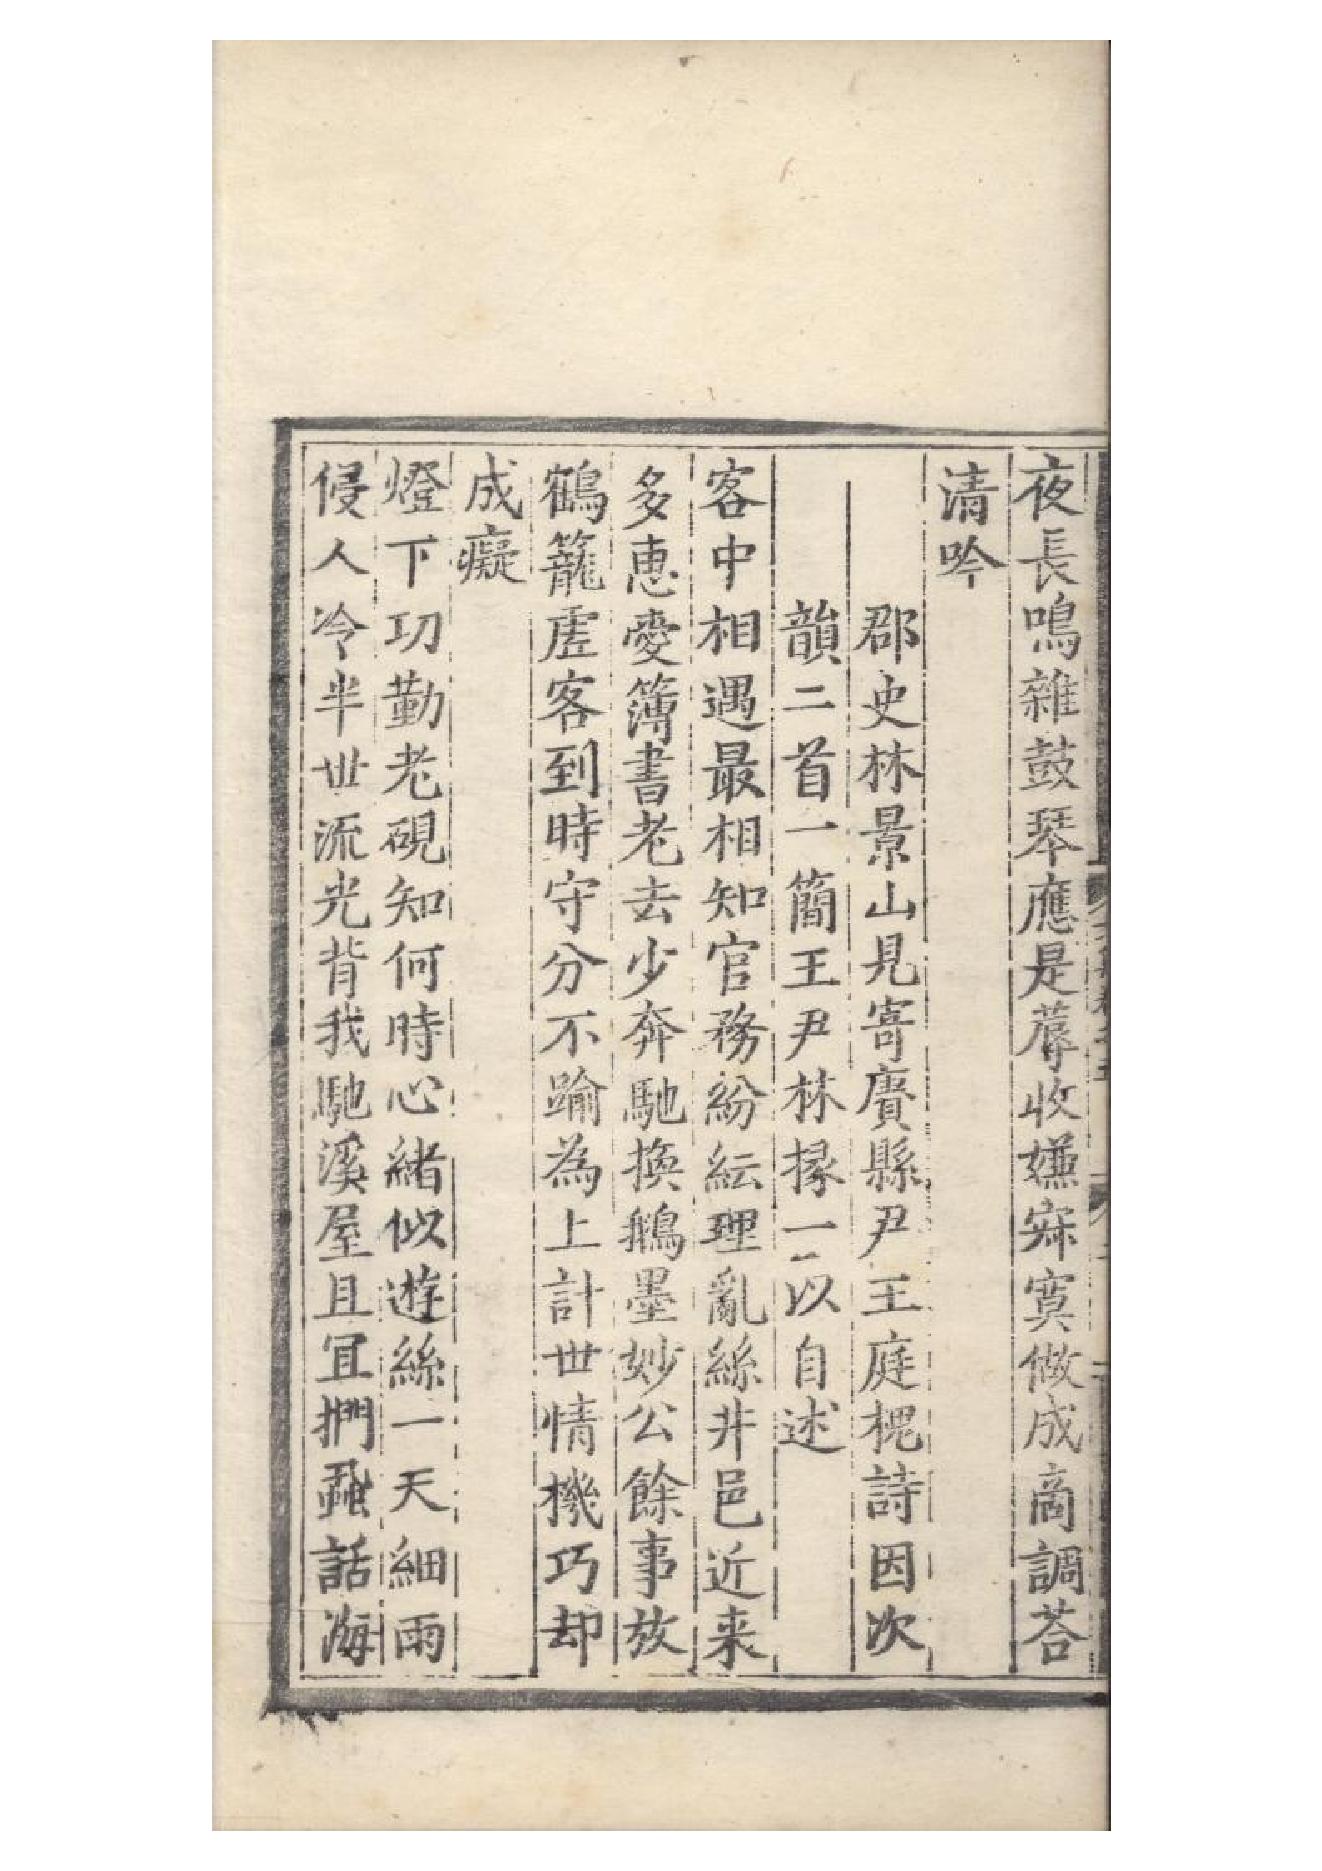 夜長鳴雜鼓琴應是蓐收嫌寂寞做成商調荅
清吟
郡史林景山見寄賡縣尹王庭槐詩因次
韻二首一簡王尹林掾一以自述
客中相遇最相知官務紛紜理亂絲非邑近来
多惠愛簿書老去少奔馳換鵝墨妙公餘事放
鶴籠虗客到時守分不踰為上計世情機巧却
成癡
燈下功勤老硯知何時心緒似遊絲一天細雨
侵人冷半世流光背我馳溪屋且冝捫蝨話海